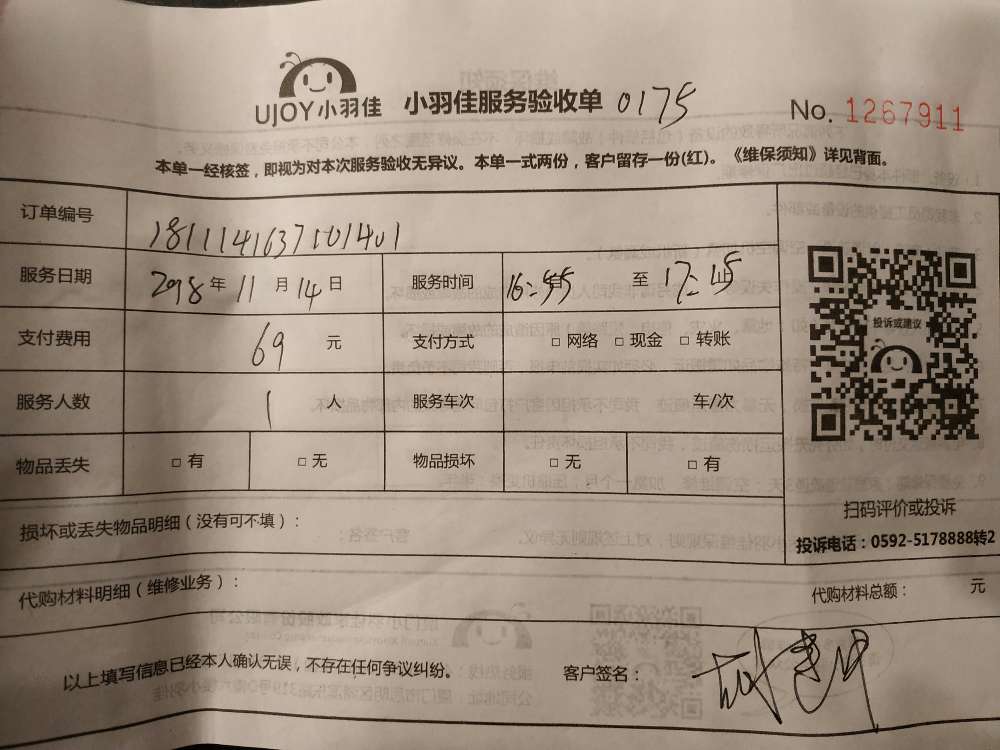 UJOY小羽佳 小羽佳服务验收单 0175 No. 1267911
本单一经核签，即视为对本次服务验收无异议。本单一式两份，客户留存一份(红)。《维保须知》详见背面。
订单编号
服务日期 2018年 11月 14日 服务时间 至 17:45
支付费用 69 元 支付方式 □ 网络 □ 现金 □ 转账
投诉或建议
服务人数 1 人 服务车次 车/次
物品丢失 □ 有 □ 无 物品损坏 □ 无 □ 有
扫码评价或投诉
损坏或丢失物品明细（没有可不填）：
投诉电话：0592-5178888转2
代购材料明细（维修业务）： 代购材料总额： 元
以上填写信息已经本人确认无误，不存在任何争议纠纷。 客户签名：